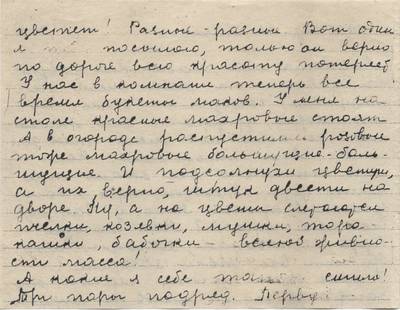 цветет! Разные - разные. Вот один
я посылаю, только он верно
по дороге всю красоту потеряет.
У нас в комнате теперь все
время букеты маков. У меня на
столе красные махровые стоят
А в огороде распустились розовые
тоже махровые большущие-боль-
шущие. И подсолнухи цветут,
а их верно, штук двести на
дворе. Ну, а на цветы слетаются
пчелки, козявки, мушки, тара-
кашки, бабочки - всякой живно-
сти масса!
А какие я себе сшила!
Три пары подряд. Перву